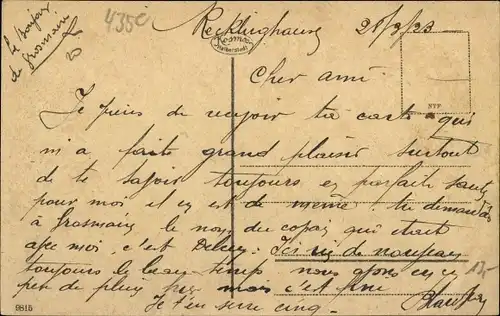 le bonjour
de Grosmaire
435c
Recklinghausen 21/9/23
Cher ami
Je viens de recevoir ta carte qui
m'a fait grand plaisir surtout
de te savoir toujours en parfaite santé
pour moi il en est de même. tu demandes
à Grosmaire le nom du copain qui était
avec moi, c'est : Ici rien de nouveau
toujours le beau temps nous avons eu un
peu de pluie mais c'est fini
Je t'en serre cinq.
NPF
9815